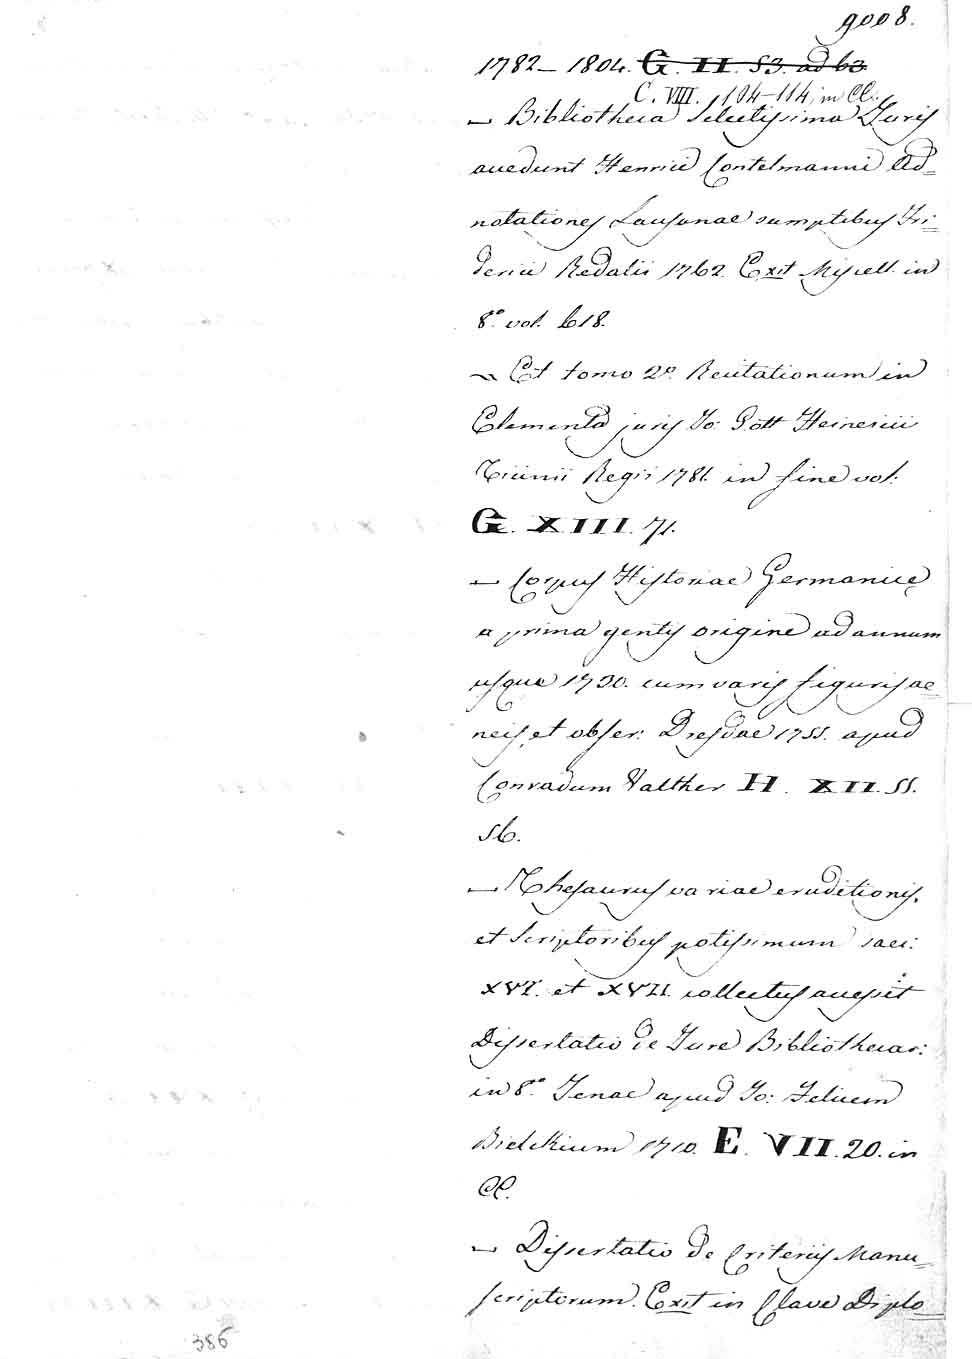 9008.
1782 – 1804. G. II. 53. ad 63
C. VIII. 104–114, in CC.
— Bibliotheca Selectissima Juris
accedunt Henrici Contelmanni Ad=
notationes Lausanae sumptibus Fri=
derici Redalii 1762. Exit Miscell. in
8.° vol. 618.
— Et tomo 2.° Recitationum in
Elementa juris Jo: Gott Heineccii
Ticinii Regii 1781. in fine vol:
G. XIII. 71.
— Corpus Historiae Germanicę
a prima gentis origine ad annum
usque 1730. cum variis figuris ae=
neis, et obser: Dresdae 1755. apud
Conradum Valther H. XII. 55.
56.
— Thesaurus variae eruditionis,
et Scriptoribus potissimum saec:
XVI. et XVII. collectus accessit
Dissertatio de Jure Bibliothecar:
in 8.° Jenae apud Jo: Felicem
Bielckium 1710. E. VII. 20. in
CC.
— Dissertatio de Criteriis Manu=
scriptorum. Exit in Clave Diplo=
386